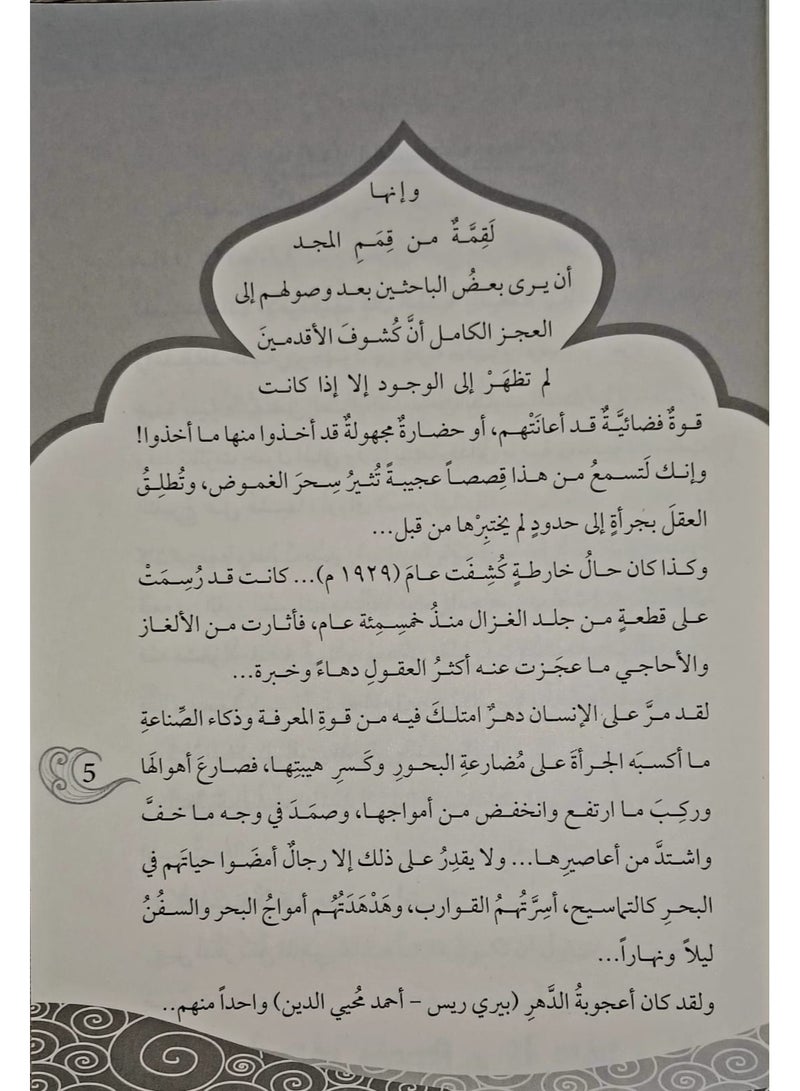 وإنها
لَقِمَّةٌ من قِمَمِ المجد
أن يرى بعضُ الباحثين بعد وصولهم إلى
العجز الكامل أنَّ كُشوفَ الأقدمينَ
لم تظهَرْ إلى الوجود إلا إذا كانت
قوةٌ فضائيَّةٌ قد أعانَتْهم، أو حضارةٌ مجهولةٌ قد أخذوا منها ما أخذوا!
وإنك لَتسمعُ من هذا قِصصاً عجيبةً تُثيرُ سِحرَ الغموض، وتُطلِقُ
العقلَ بجرأةٍ إلى حدودٍ لم يختبِرْها من قبل...
وكذا كان حالُ خارطةٍ كُشِفَت عامَ (١٩٢٩ م)... كانت قد رُسِمَتْ
على قطعةٍ من جلد الغزال منذُ خمسِمِئة عام، فأثارت من الألغاز
والأحاجي ما عجَزت عنه أكثرُ العقولِ دهاءً وخبرة...
لقد مرَّ على الإنسان دهرٌ امتلكَ فيه من قوةِ المعرفة وذكاء الصِّناعةِ
ما أكسبَه الجرأةَ على مُضارعةِ البحورِ وكَسرِ هيبتِها، فصارعَ أهوالَها
5
وركِبَ ما ارتفع وانخفض من أمواجها، وصمَدَ في وجه ما خفَّ
واشتدَّ من أعاصيرِها... ولا يقدِرُ على ذلك إلا رجالٌ أمضَوا حياتَهم في
البحرِ كالتماسيح، أسِرَّتُهمُ القوارب، وهَدْهَدَتْهُم أمواجُ البحر والسفُنُ
ليلاً ونهاراً...
ولقد كان أعجوبةُ الدَّهرِ (بيري ريس – أحمد مُحيي الدين) واحداً منهم..